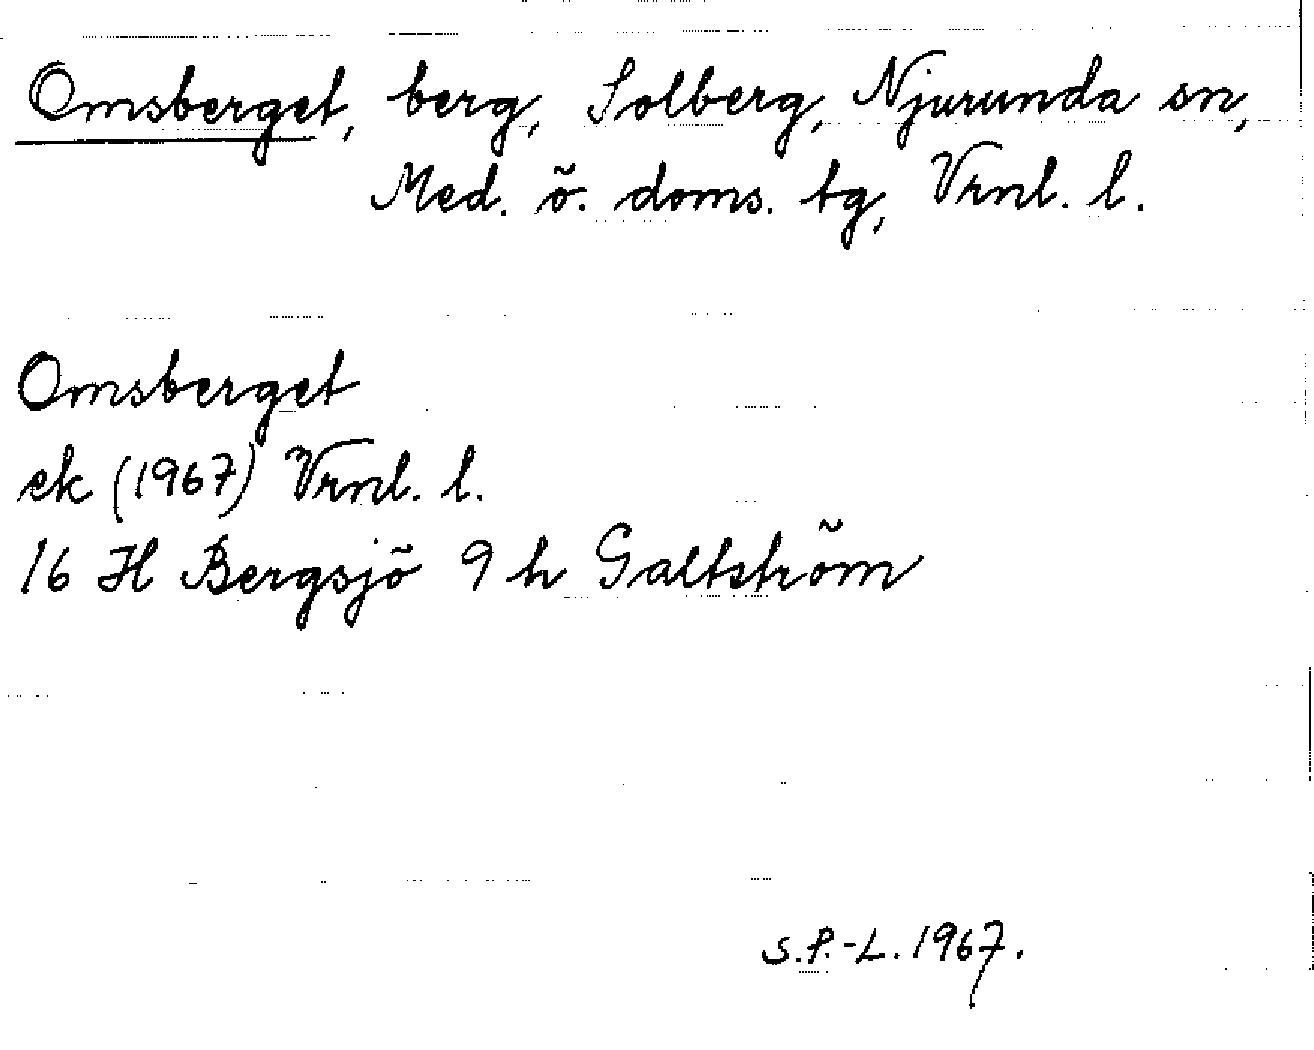 Omsberget, berg, Solberg, Njurunda sn,
Med. ö. doms. tg, Vrnl. l.
Omsberget
ek (1967) Vrnl. l.
16 H Bergsjö 9 h Galtström
S.P.-L. 1967.